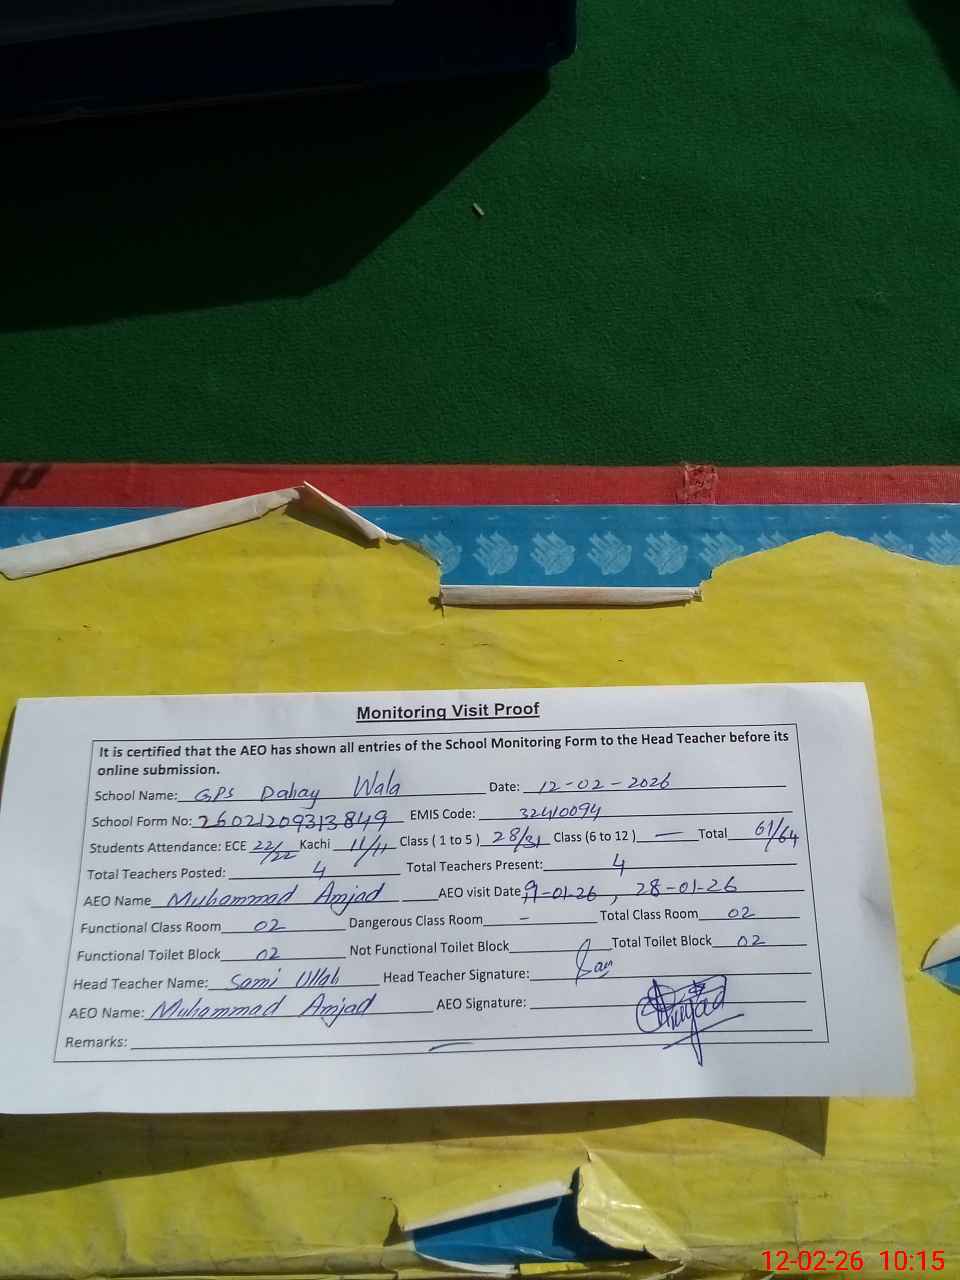 Monitoring Visit Proof
It is certified that the AEO has shown all entries of the School Monitoring Form to the Head Teacher before its
online submission.
School Name: GPS Dahay Wala Date: 12-02-2026
School Form No: 26021209313849 EMIS Code: 32410094
Students Attendance: ECE 22/22 Kachi 11/11 Class ( 1 to 5 ) 28/31 Class (6 to 12 ) — Total 61/64
Total Teachers Posted: 4 Total Teachers Present: 4
AEO Name Muhammad Amjad AEO visit Date 9-01-26 , 28-01-26
Functional Class Room 02 Dangerous Class Room - Total Class Room 02
Functional Toilet Block 02 Not Functional Toilet Block Total Toilet Block 02
Head Teacher Name: Sami Ullah Head Teacher Signature: Sam
AEO Name: Muhammad Amjad AEO Signature: Amjad
Remarks: —
12-02-26 10:15